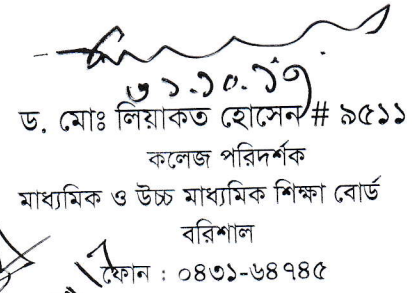 ৩১.১০.১৭
ড. মোঃ লিয়াকত হোসেন # ৯৫১১
কলেজ পরিদর্শক
মাধ্যমিক ও উচ্চ মাধ্যমিক শিক্ষা বোর্ড
বরিশাল
ফোন : ০৪৩১-৬৪৭৪৫